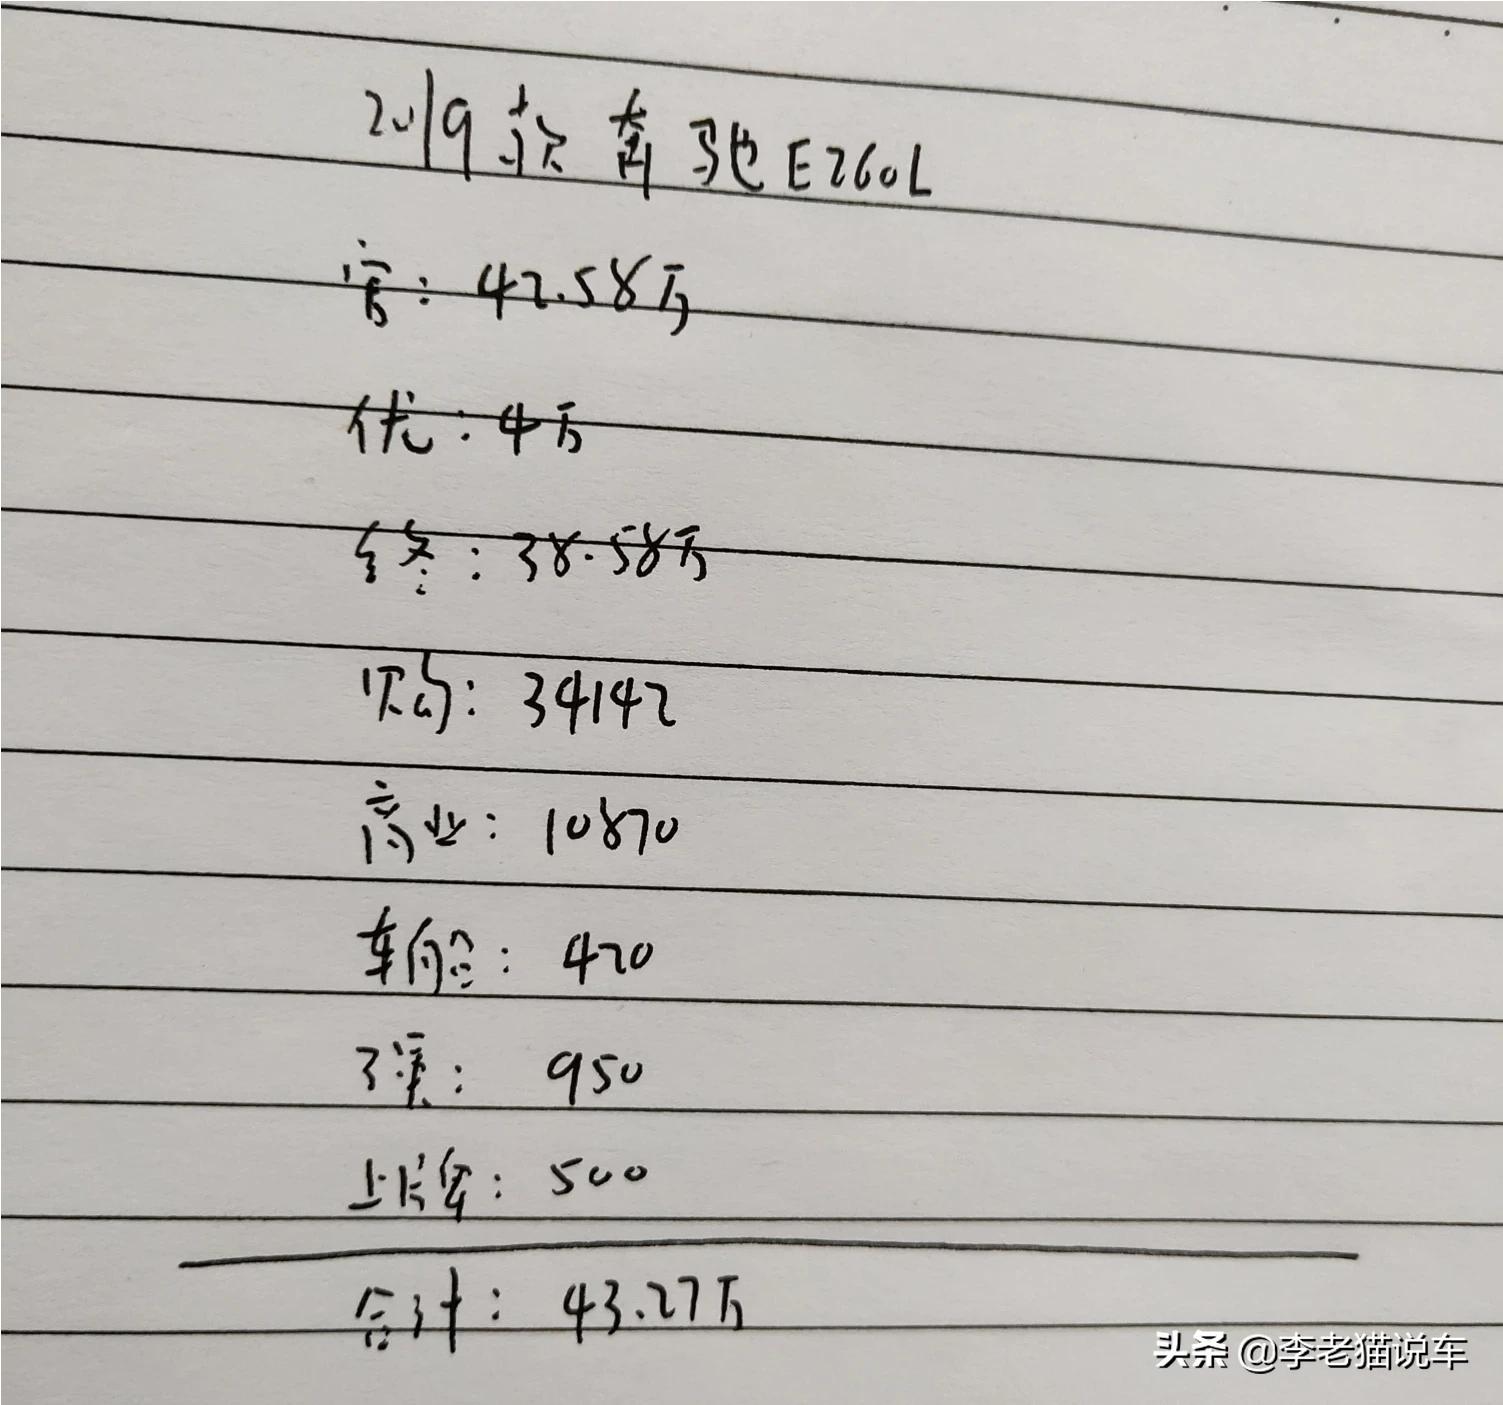 2019款奔驰E260L
官：42.58万
优：4万
终：38.58万
购：34142
商业：10870
车船：420
交强：950
上牌：500
合计：43.27万
头条 @李老猫说车